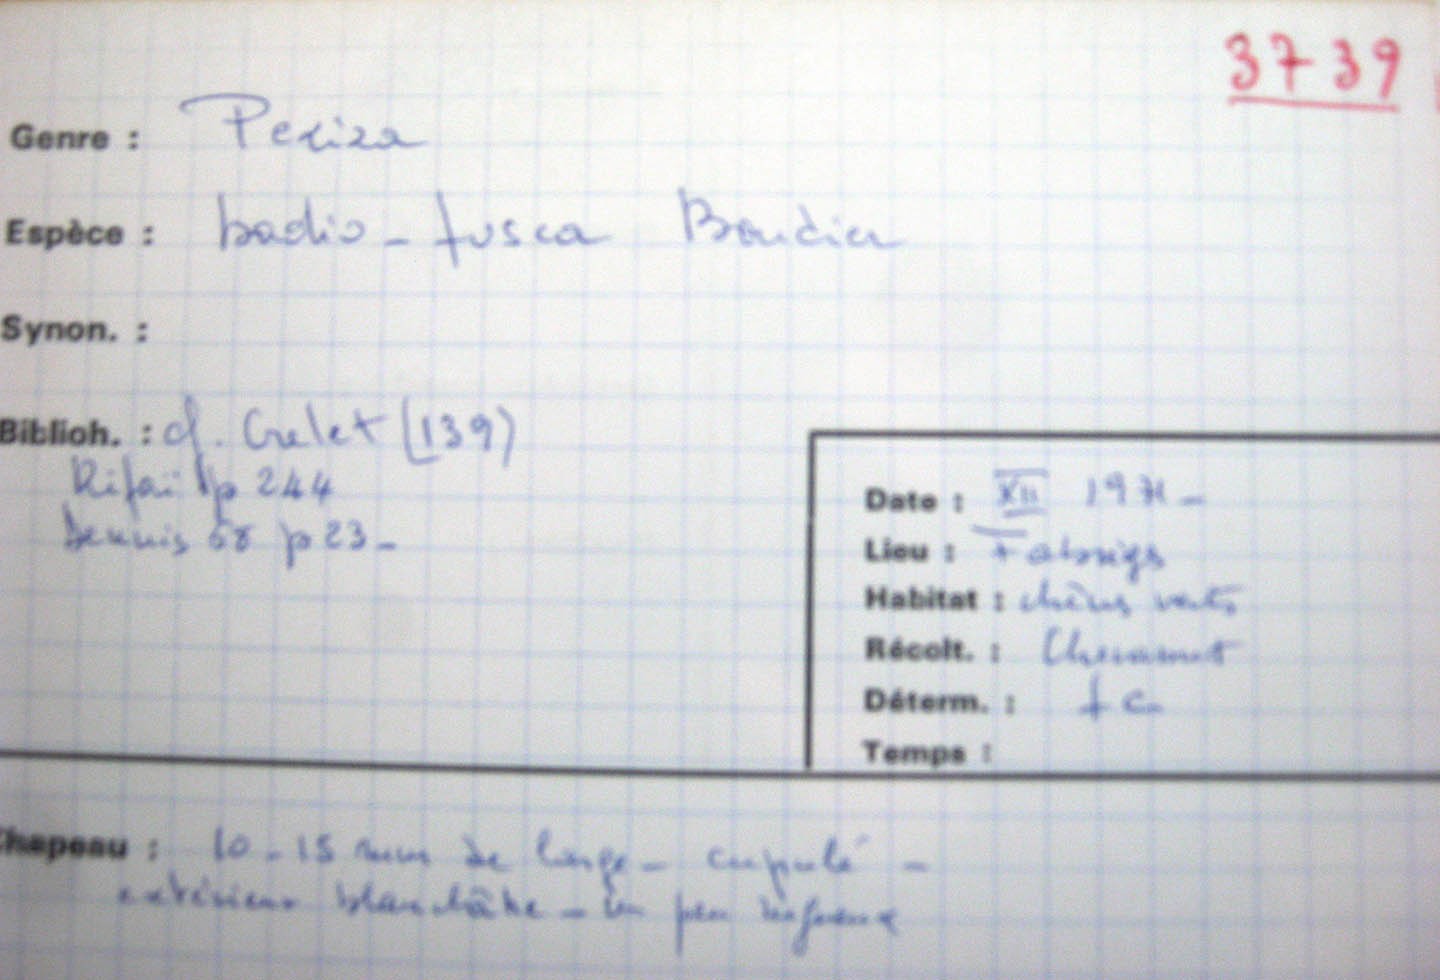 3739
Genre : Peziza
Espèce : badio-fusca Boudier
Synon. :
Biblioh. : cf. Grelet (139)
Rifaï p 244
Dennis 68 p 23 -
Date : XII 1971 -
Lieu :
Habitat : chênes verts
Récolt. :
Déterm. :
Temps :
Chapeau : 10-15 mm de large - cupulé -
extérieur blanchâtre - un peu